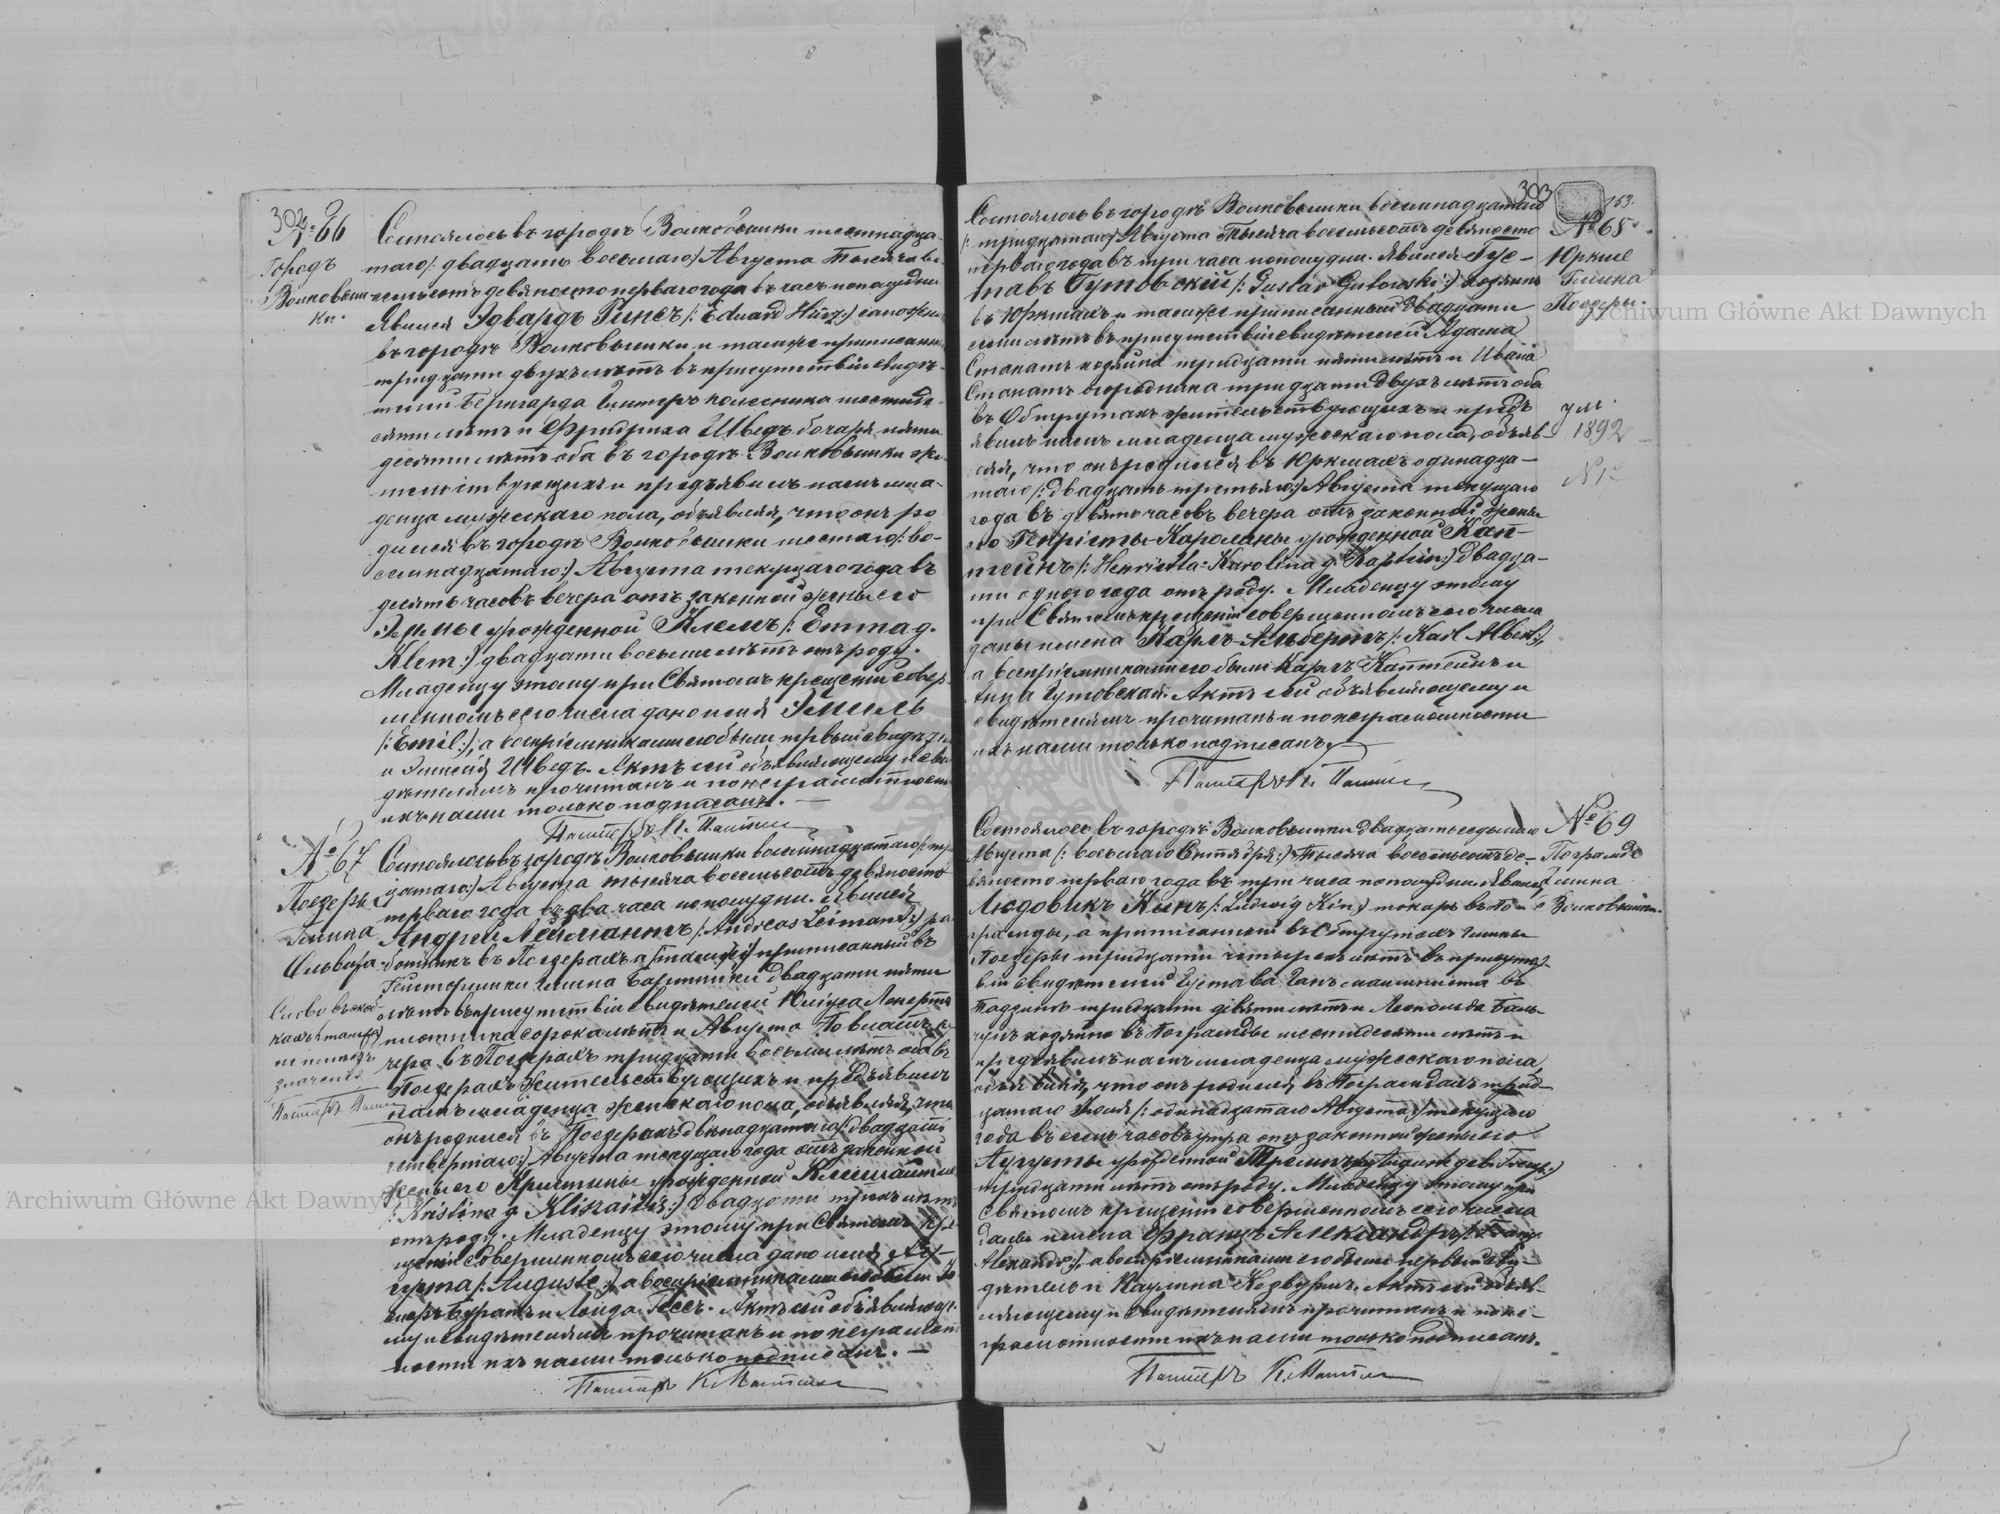 302
№ 66
Городъ
Волковыш
ки.
Состоялось въ городѣ Волковышки шестнадца-
таго /: двадцать восьмаго :/ Августа тысяча во-
семьсотъ девяносто перваго года въ часъ пополудни
явился Эдвардъ Гинсъ /: Eduard Hinz :/ сапожн
въ городѣ Волковышки и тамже приписанн
тридцати двухъ лѣтъ въ присутствіи свидѣ-
телей Бернгарда колесника шестиде-
сяти лѣтъ и Фридриха Шведъ бочаря пяти
десяти лѣтъ оба въ городѣ Волковышки жи-
тельствующихъ и предъявилъ намъ мла-
денца мужескаго пола, объявляя, что онъ ро
дился въ городѣ Волковышки шестаго /: во-
семнадцатаго :/ Августа текущаго года въ
десять часовъ вечера отъ законной жены его
Эммы урожденной Клемъ /: Emma d.
Klem :/ двадцати восьми лѣтъ отъ роду.
Младенцу этому при Святомъ крещеніи совер-
шенномъ сего числа дано имя Эмиль
/: Emil :/, а воспріемниками его были первый свидѣт
и Эмилія Шведъ. Актъ сей объявляющему и сви
дѣтелямъ прочитанъ и по неграмотности
ихъ нами только подписанъ. —
Пасторъ К.
№ 67
Поедеры
Гмина
Ольвита
Слово въ скоб
кахъ /тамже/
не имѣетъ
значенія
Пасторъ
Состоялось въ городѣ Волковышки восемнадцатаго /: три
цатаго :/ Августа тысяча восемьсотъ девяносто
перваго года въ два часа пополудни. Явился
Андрей Леймантъ /: Andreas Leimant :/ ра
ботникъ въ Поедерахъ а /тамже/ приписанный въ
гмина Бартники двадцати пяти
лѣтъ въ присутствіи свидѣтелей Юліуса
плотника сорока лѣтъ и Августа
въ Поедерахъ тридцати восьми лѣтъ оба въ
Поедерахъ жительствующихъ и предъявилъ
намъ младенца женскаго пола, объявляя, что
онъ родился въ Поедерахъ двѣнадцатаго /: двадцать
четвертаго :/ Августа текущаго года отъ законной
жены его Кристины урожденной
/: Kristina d. Kliszaitis :/ двадцати трехъ лѣтъ
отъ роду. Младенцу этому при Святомъ кре
щеніи совершенномъ сего числа дано имя Ав-
густа /: Auguste :/, а воспріемниками его были
и Гессъ. Актъ сей объявляюще
му и свидѣтелямъ прочитанъ и по неграмот
ности ихъ нами только подписанъ. —
Пасторъ К.
303
153.
№ 68
Юркше
Гмина
Поедеры.
ум.
1892
№ 17
Состоялось въ городѣ Волковышки восемнадцатаго
/: тридцатаго :/ Августа тысяча восемьсотъ девяносто
перваго года въ три часа пополудни. Явился Гус-
тавъ Гутовскій /: Gustav Gutowski :/ хозяинъ
въ Юркшахъ и тамже приписанный двадцати
семи лѣтъ въ присутствіи свидѣтелей Адама
хозяина тридцати пяти лѣтъ и Ивана
огородника тридцати двухъ лѣтъ оба
въ Обтрутахъ жительствующихъ и предъ
явилъ намъ младенца мужескаго пола, объяв
ляя, что онъ родился въ Юркшахъ одинадца-
таго /: двадцать третьяго :/ Августа текущаго
года въ девять часовъ вечера отъ законной жены
его Генріеты-Каролины урожденной Кап-
тейнъ /: Henrietta-Karolina d. Kaptein :/ двадца-
ти одного года отъ роду. Младенцу этому
при Святомъ крещеніи совершенномъ сего числа
даны имена Карлъ-Альбертъ /: Karl Albert :/,
а воспріемниками его были Карлъ Каптейнъ и
Анна Гутовская. Актъ сей объявляющему и
свидѣтелямъ прочитанъ и по неграмотности
ихъ нами только подписанъ.
Пасторъ К.
№ 69
Пограмде
Гмина
Волковышки.
Состоялось въ городѣ Волковышки двадцать седьмаго
Августа /: восьмаго Сентября :/ тысяча восемьсотъ де-
вяносто перваго года въ три часа пополудни. Явился
Людовикъ Кинъ /: Ludwig Kin :/ токарь въ По-
грамды, а приписанный въ Обтрутахъ гмины
Поедеры тридцати четырехъ лѣтъ въ присутст-
віи свидѣтелей Густава машиниста въ
тридцати девяти лѣтъ и Леопольда
хозяина въ Пограмды шестидесяти лѣтъ и
предъявилъ намъ младенца мужескаго пола,
объявляя, что онъ родился въ Пограмдахъ трид-
цатаго Іюля /: одинадцатаго Августа :/ текущаго
года въ семь часовъ утра отъ законной жены его
Августы урожденной
тридцати лѣтъ отъ роду. Младенцу этому при
Святомъ крещеніи совершенномъ сего числа
даны имена Францъ Александръ /: Franz
Alexander :/, а воспріемниками его были первый сви-
дѣтель и Каулина Актъ сей объяв-
ляющему и свидѣтелямъ прочитанъ и по не-
грамотности ихъ нами только подписанъ.
Пасторъ К.
Archiwum Główne Akt Dawnych
Archiwum Główne Akt Dawnych